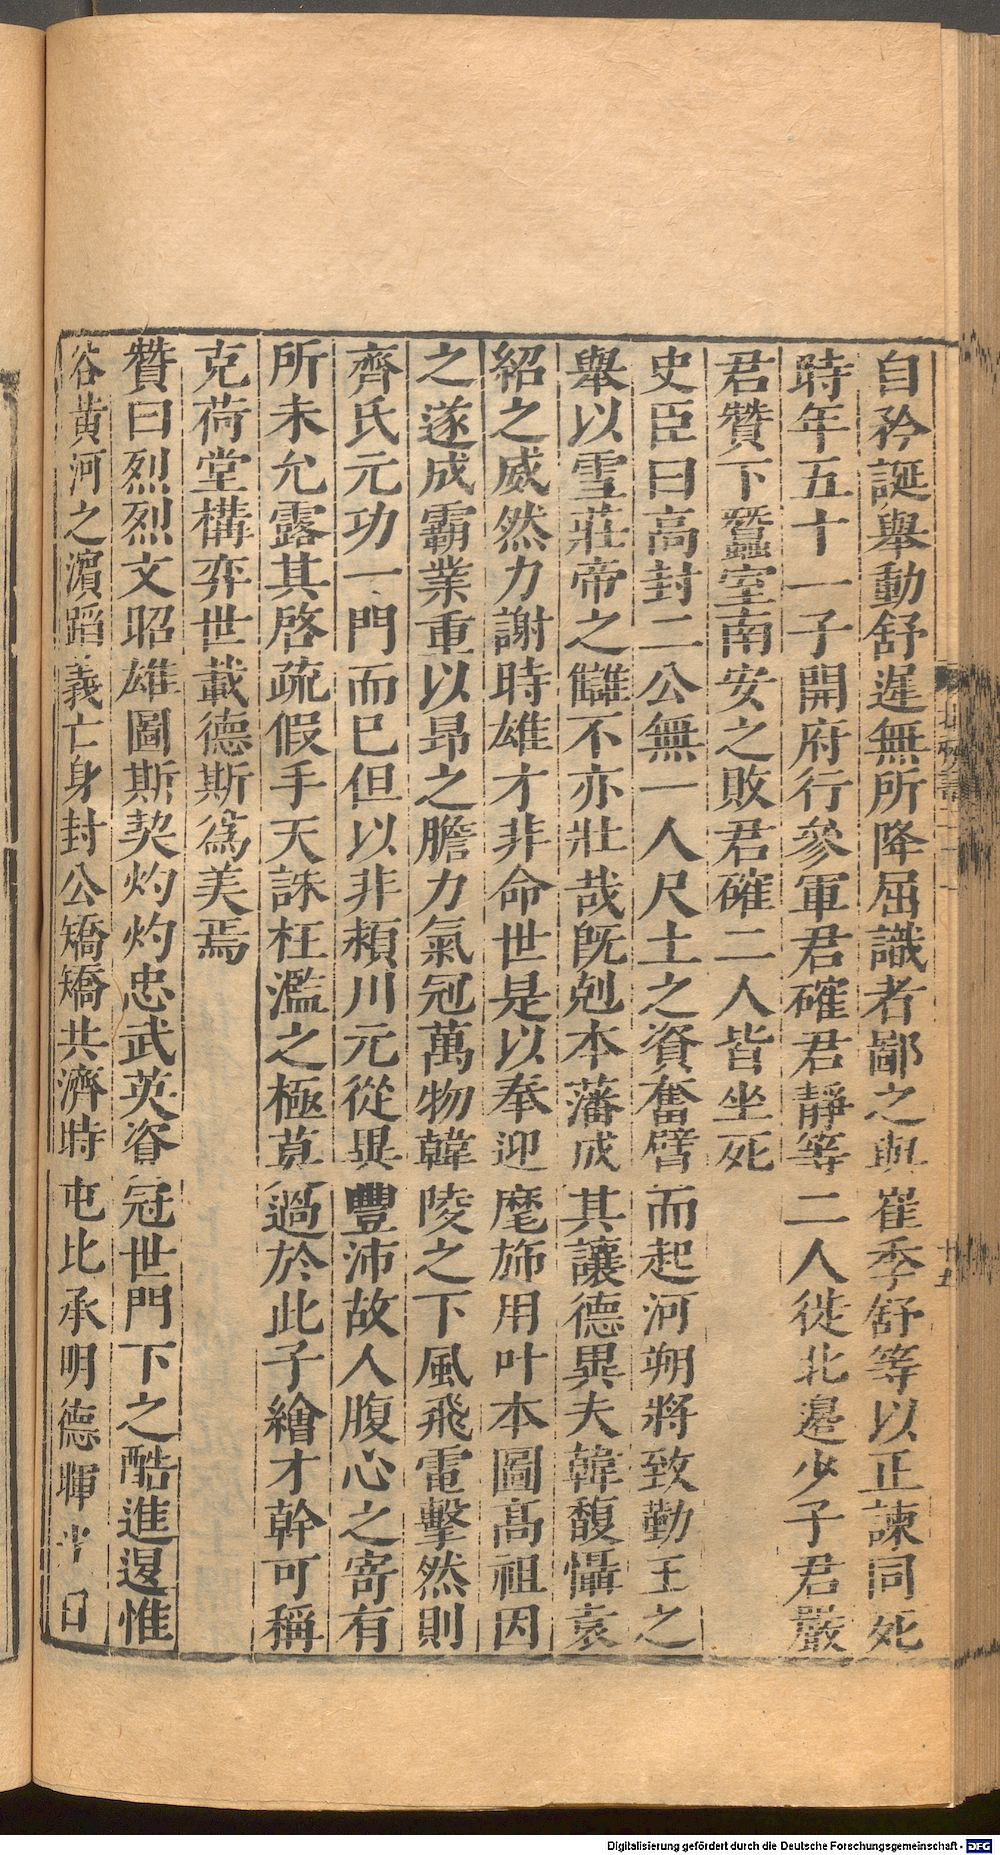 自矜誕舉動舒遲無所降屈識者鄙之與崔季舒等以正諫同死
時年五十一子開府行參軍君確君靜等二人徙北邊少子君嚴
君贊下蠶室南安之敗君確二人皆坐死
史臣曰高封二公無一人尺土之資奮臂而起河朔將致勤王之
舉以雪莊帝之讎不亦壯哉旣剋本藩成其讓德異夫韓馥懾袁
紹之威然力謝時雄才非命世是以奉迎麾斾用叶本圖髙祖因
之遂成霸業重以昂之膽力氣冠萬物韓陵之下風飛電擊然則
齊氏元功一門而已但以非頛川元從異豐沛故人腹心之寄有
所未允露其啓疏假手天誅枉濫之極莫過於此子繪才幹可稱
克荷堂構弈世載德斯爲美焉
贊曰烈烈文昭雄圖斯契灼灼忠武英資冠世門下之酷進退惟
谷黄河之濵蹈義亡身封公矯矯共濟時屯比承明德暉 日
十五
Digitalisierung gefördert durch die Deutsche Forschungsgemeinschaft - DFG